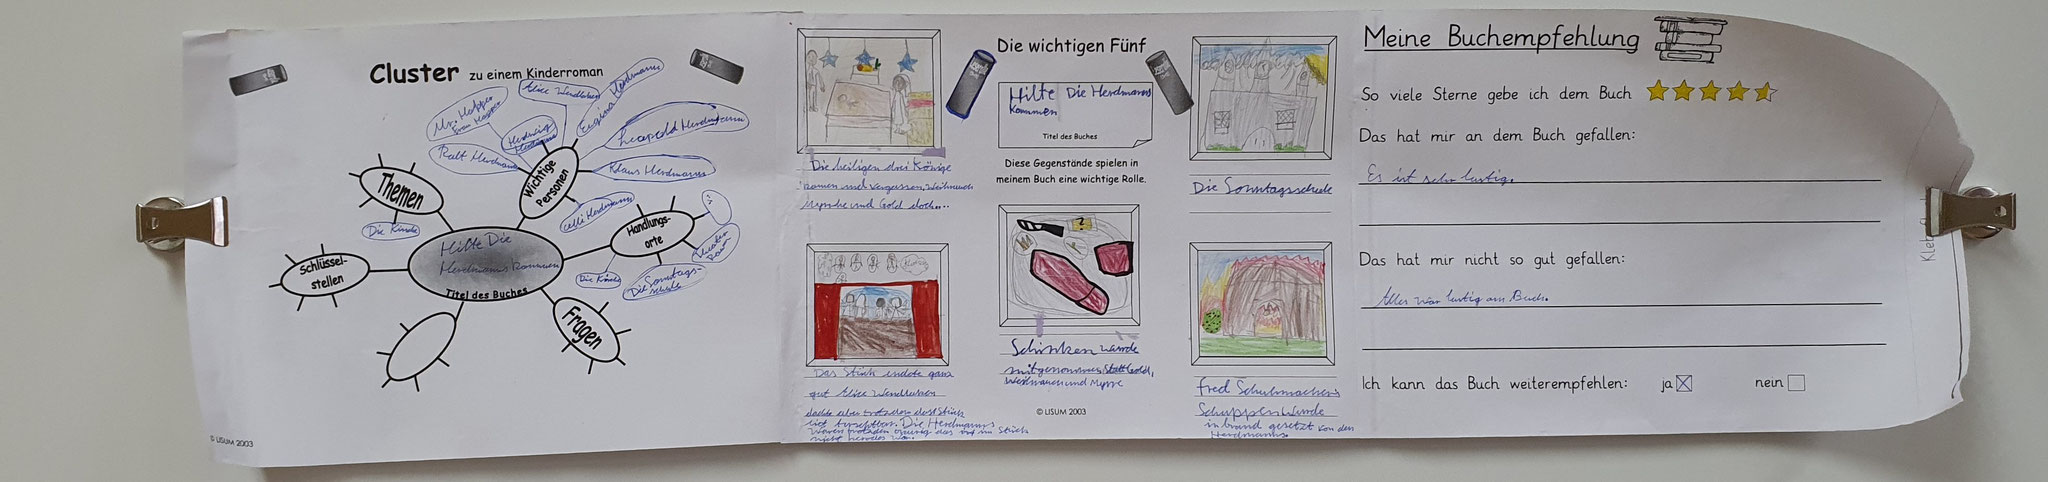 Cluster zu einem Kinderroman
Alice Wendlaken
Eugenia Herdmann
Hedwig Herdmann
Leopold Herdmann
Ralf Herdmann
Klaus Herdmann
Olli Herdmann
Wichtige Personen
Themen
Die Kirche
Handlungsorte
Die Kirche
Die Sonntagsschule
Schlüsselstellen
Hilfe Die
Herdmanns Kommen
Titel des Buches
Fragen
© LISUM 2003
Die wichtigen Fünf
Hilfe Die Herdmanns
Kommen
Titel des Buches
Diese Gegenstände spielen in
meinem Buch eine wichtige Rolle.
Die heiligen drei Könige
kamen und vergassen, Weihrauch
Myrrhe und Gold doch...
Die Sonntagsschule
Das Stück endete ganz
gut Alice Wendlaken
dachte aber trotzdem das Stück
Die Herdmanns
Schinken wurde
mitgenommen statt Gold,
Weihrauch und Myrre
Fred Schuhmachers
Schuppen wurde
in brand gesetzt von den
Herdmanns.
© LISUM 2003
Meine Buchempfehlung
So viele Sterne gebe ich dem Buch
Das hat mir an dem Buch gefallen:
Es ist sehr lustig.
Das hat mir nicht so gut gefallen:
Alles war lustig am Buch.
Ich kann das Buch weiterempfehlen: ja nein